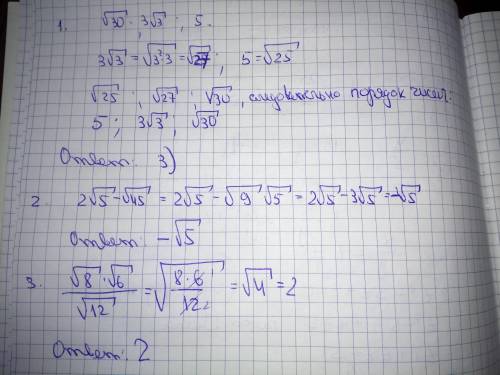 1. √30 ; 3√3 ; 5.
3√3 = √3²·3 = √27 ; 5 = √25
√25 ; √27 ; √30 , следовательно порядок чисел:
5 ; 3√3 ; √30
Ответ: 3)
2. 2√5 - √45 = 2√5 - √9 √5 = 2√5 - 3√5 = -√5
Ответ: -√5
3. √8 · √6 / √12 = √(8·6 / 12₂) = √4 = 2
Ответ: 2